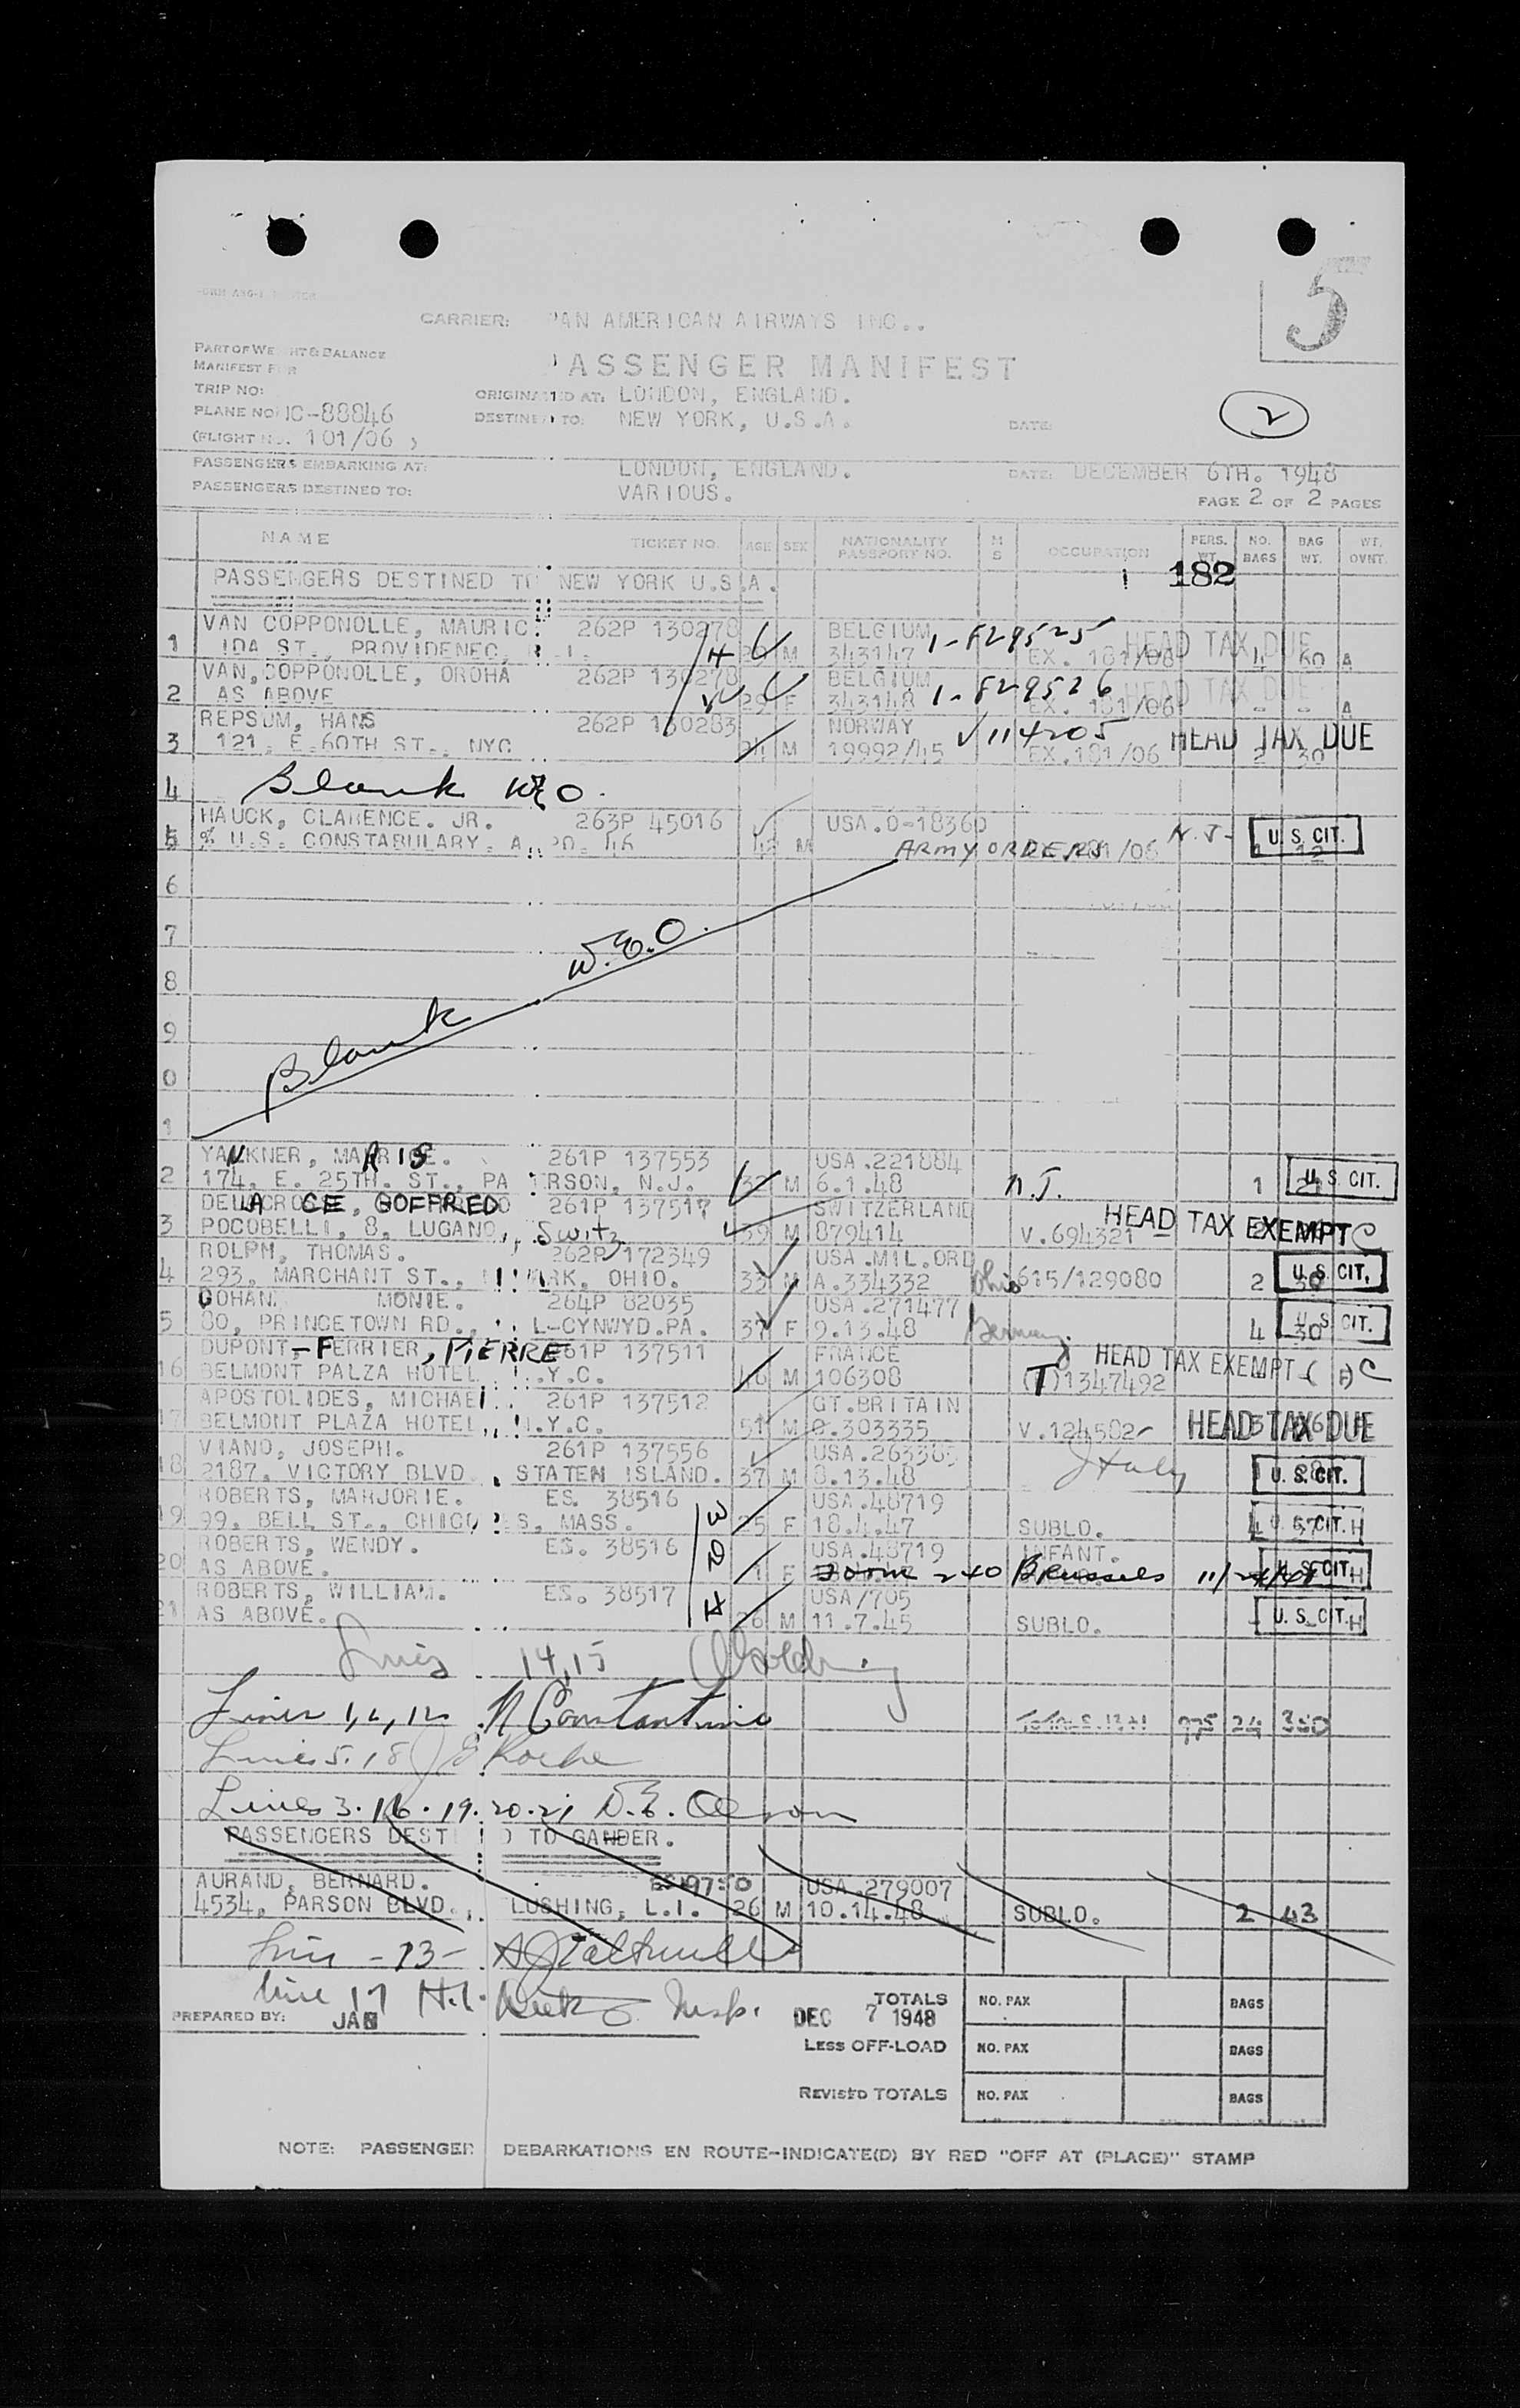 CARRIER: PAN AMERICAN AIRWAYS INC..
PART OF WEIGHT & BALANCE
MANIFEST FOR
PASSENGER MANIFEST
5
TRIP NO:
ORIGINATED AT: LONDON, ENGLAND.
PLANE NO: NC-88846
DESTINED TO: NEW YORK, U.S.A.
DATE:
2
(FLIGHT NO. 101/06 )
PASSENGERS EMBARKING AT: LONDON, ENGLAND. DATE: DECEMBER 6TH. 1948
PASSENGERS DESTINED TO: VARIOUS. PAGE 2 OF 2 PAGES
NAME TICKET NO. AGE SEX NATIONALITY PASSPORT NO. M S OCCUPATION PERS. WT. NO. BAGS BAG WT. WT. OVNT.
PASSENGERS DESTINED TO NEW YORK U.S.A. 182
VAN COPPONOLLE, MAURIC 262P 130278 BELGIUM 1-829525 HEAD TAX DUE
1 IDA ST., PROVIDENEC, R.I. H 29 M 343147 EX. 181/06 4 60 A
VAN, COPPONOLLE, OROHA 262P 130278 BELGIUM 1-829526 HEAD TAX DUE
2 AS ABOVE W 29 F 343148 EX. 181/06 - - A
REPSUM, HANS 262P 130283 NORWAY 114205 HEAD TAX DUE
3 121. E.60TH ST., NYC M 19992/45 EX.181/06 2 30
4 Blank WEO.
HAUCK, CLARENCE. JR. 263P 45016 USA.O-18360 N.J. U.S. CIT.
5 % U.S. CONSTABULARY. A.PO. 46 42 M ARMY ORDERS 181/06 12
6
7 W.E.O.
8
9 Blank
0
1
YANKNER, MARIS. 261P 137553 USA.221884
2 174. E. 25TH. ST., PATERSON, N.J. 32 M 6.1.48 N.J. 1 U.S. CIT.
DELACROCE, GOFFREDO 261P 137517 SWITZERLAND HEAD TAX EXEMPT C
3 POCOBELLI, 8, LUGANO, Switz 39 M 879414 V.694321
ROLPH, THOMAS. 262P 172349 USA.MIL.ORD
4 293. MARCHANT ST., NEWARK, OHIO. 33 M A.334332 Ohio 615/129080 2 30 U.S. CIT.
GOHAN. MONIE. 264P 82035 USA.271477
5 80, PRINCETOWN RD., L-CYNWYD.PA. 37 F 9.13.48 Germany. 4 30 U.S. CIT.
DUPONT-FERRIER, PIERRE 261P 137511 FRANCE HEAD TAX EXEMPT C
16 BELMONT PALZA HOTEL N.Y.C. 46 M 106308 (T)1347492
APOSTOLIDES, MICHAEL. 261P 137512 GT.BRITAIN
17 BELMONT PLAZA HOTEL, N.Y.C. 51 M C.303335 V.124502 HEAD TAX DUE
VIANO, JOSEPH. 261P 137556 USA.263365 Italy
18 2187. VICTORY BLVD., STATEN ISLAND. 37 M 8.13.48 U.S. CIT.
ROBERTS, MARJORIE. ES. 38516 W USA.48719
19 99. BELL ST., CHICOPES, MASS. 25 F 18.4.47 SUBLO. 4 57 U.S. CIT. H
ROBERTS, WENDY. ES. 38516 D USA.48719 INFANT.
20 AS ABOVE. 1 F Form 240 Brussels U.S. CIT. H
ROBERTS, WILLIAM. ES. 38517 H USA/705
21 AS ABOVE. 26 M 11.7.45 SUBLO. - U.S. CIT. H
Lines 14,15
Lines 1,2,12 N Constantino TOTALS 13+1 975 24 350
Lines 5.18 J E Roche
Lines 3.16.19.20.21 W.E. Olsson
PASSENGERS DESTINED TO GANDER.
AURAND, BERNARD. ES 9750 USA.279007
4534, PARSON BLVD., FLUSHING, L.I. 26 M 10.14.48 SUBLO. 2 43
Line -13-
Line 17 H.I. Insp. DEC 7 1948
PREPARED BY:
TOTALS NO. PAX BAGS
LESS OFF-LOAD NO. PAX BAGS
REVISED TOTALS NO. PAX BAGS
NOTE: PASSENGER DEBARKATIONS EN ROUTE-INDICATE(D) BY RED "OFF AT (PLACE)" STAMP